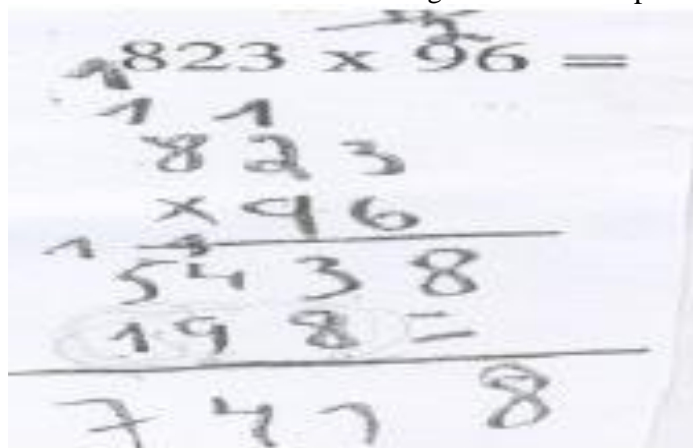 823 x 96 =
1 1
8 2 3
x 9 6
5 4 3 8
1 9 8 =
7 4 1 8